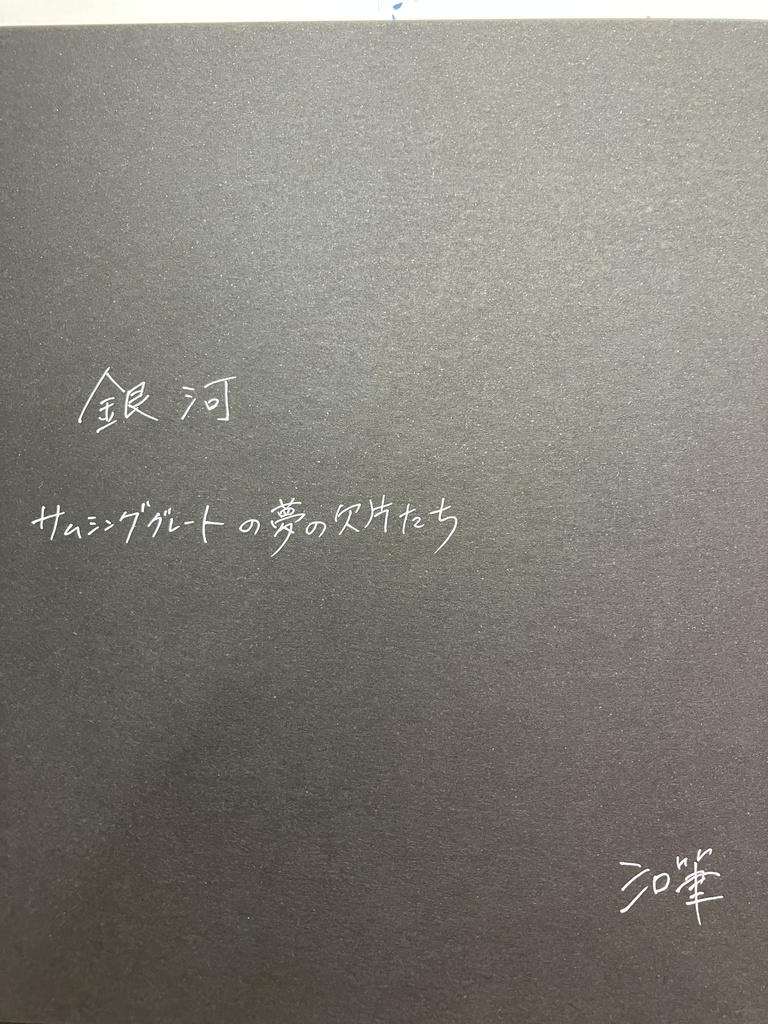 銀河
サムシンググレートの夢の欠片たち
シロ筆